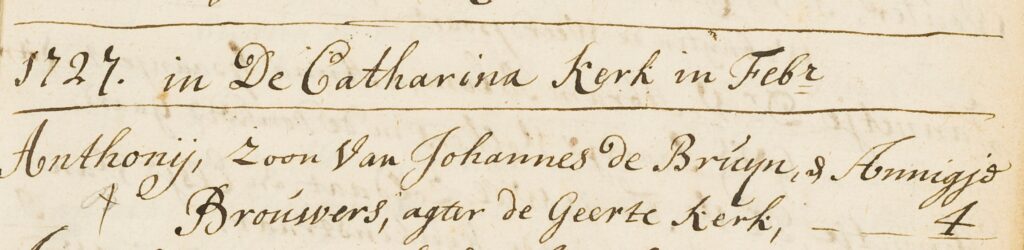 1727. in De Catharina Kerk in Febr
Anthonij, Zoon Van Johannes de Bruyn, & Annigje
Brouwers, agter de Geerte Kerk, 4